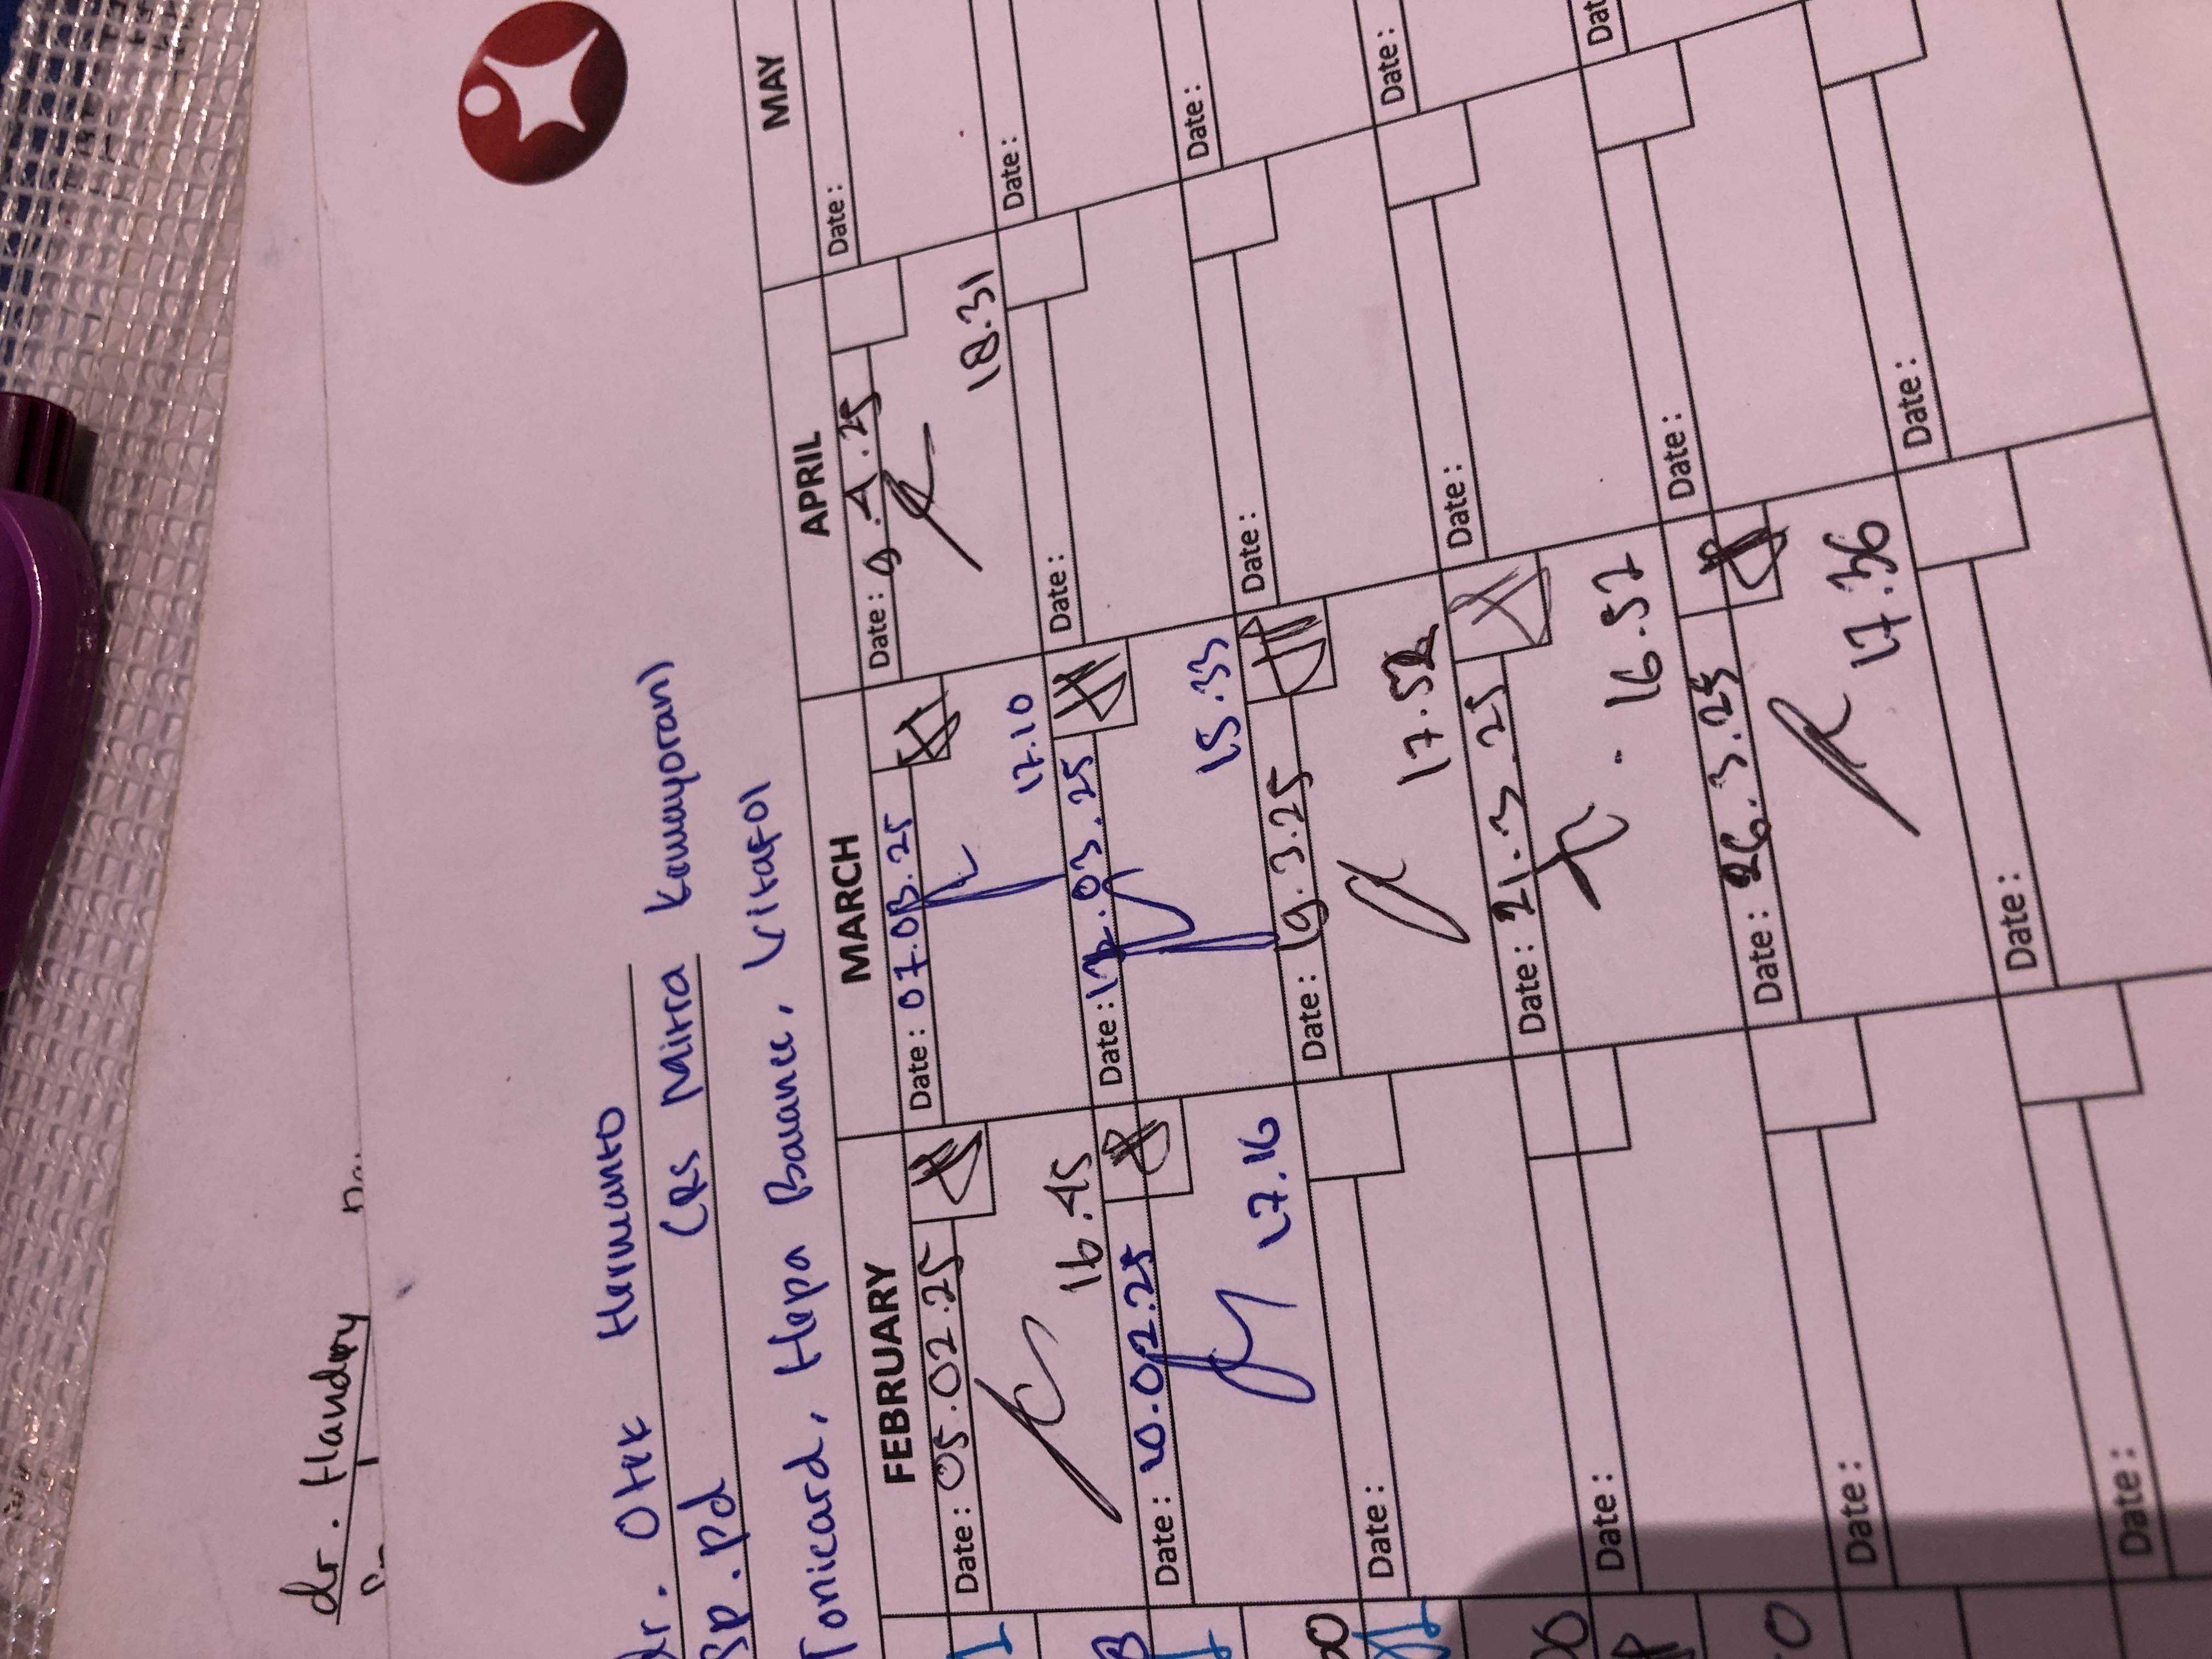 dr. Handry
dr. Otre Hermanto
Sp. Pd (RS Mitra Kemayoran)
Tonicard, Hepa Balance, Vitafol
FEBRUARY MARCH APRIL MAY
Date: 05.02.25 Date: 07.03.25 Date: 9.4.25 Date:
16.45 17.10 18.31
Date: 10.02.25 Date: 12.03.25 Date: Date:
17.16 15.33
Date: Date: 19.3.25 Date: Date:
17.52
Date: Date: 21.3.25 Date: Date:
16.52
Date: Date: 26.3.25 Date: Dat
17.36
Date: Date: Date: